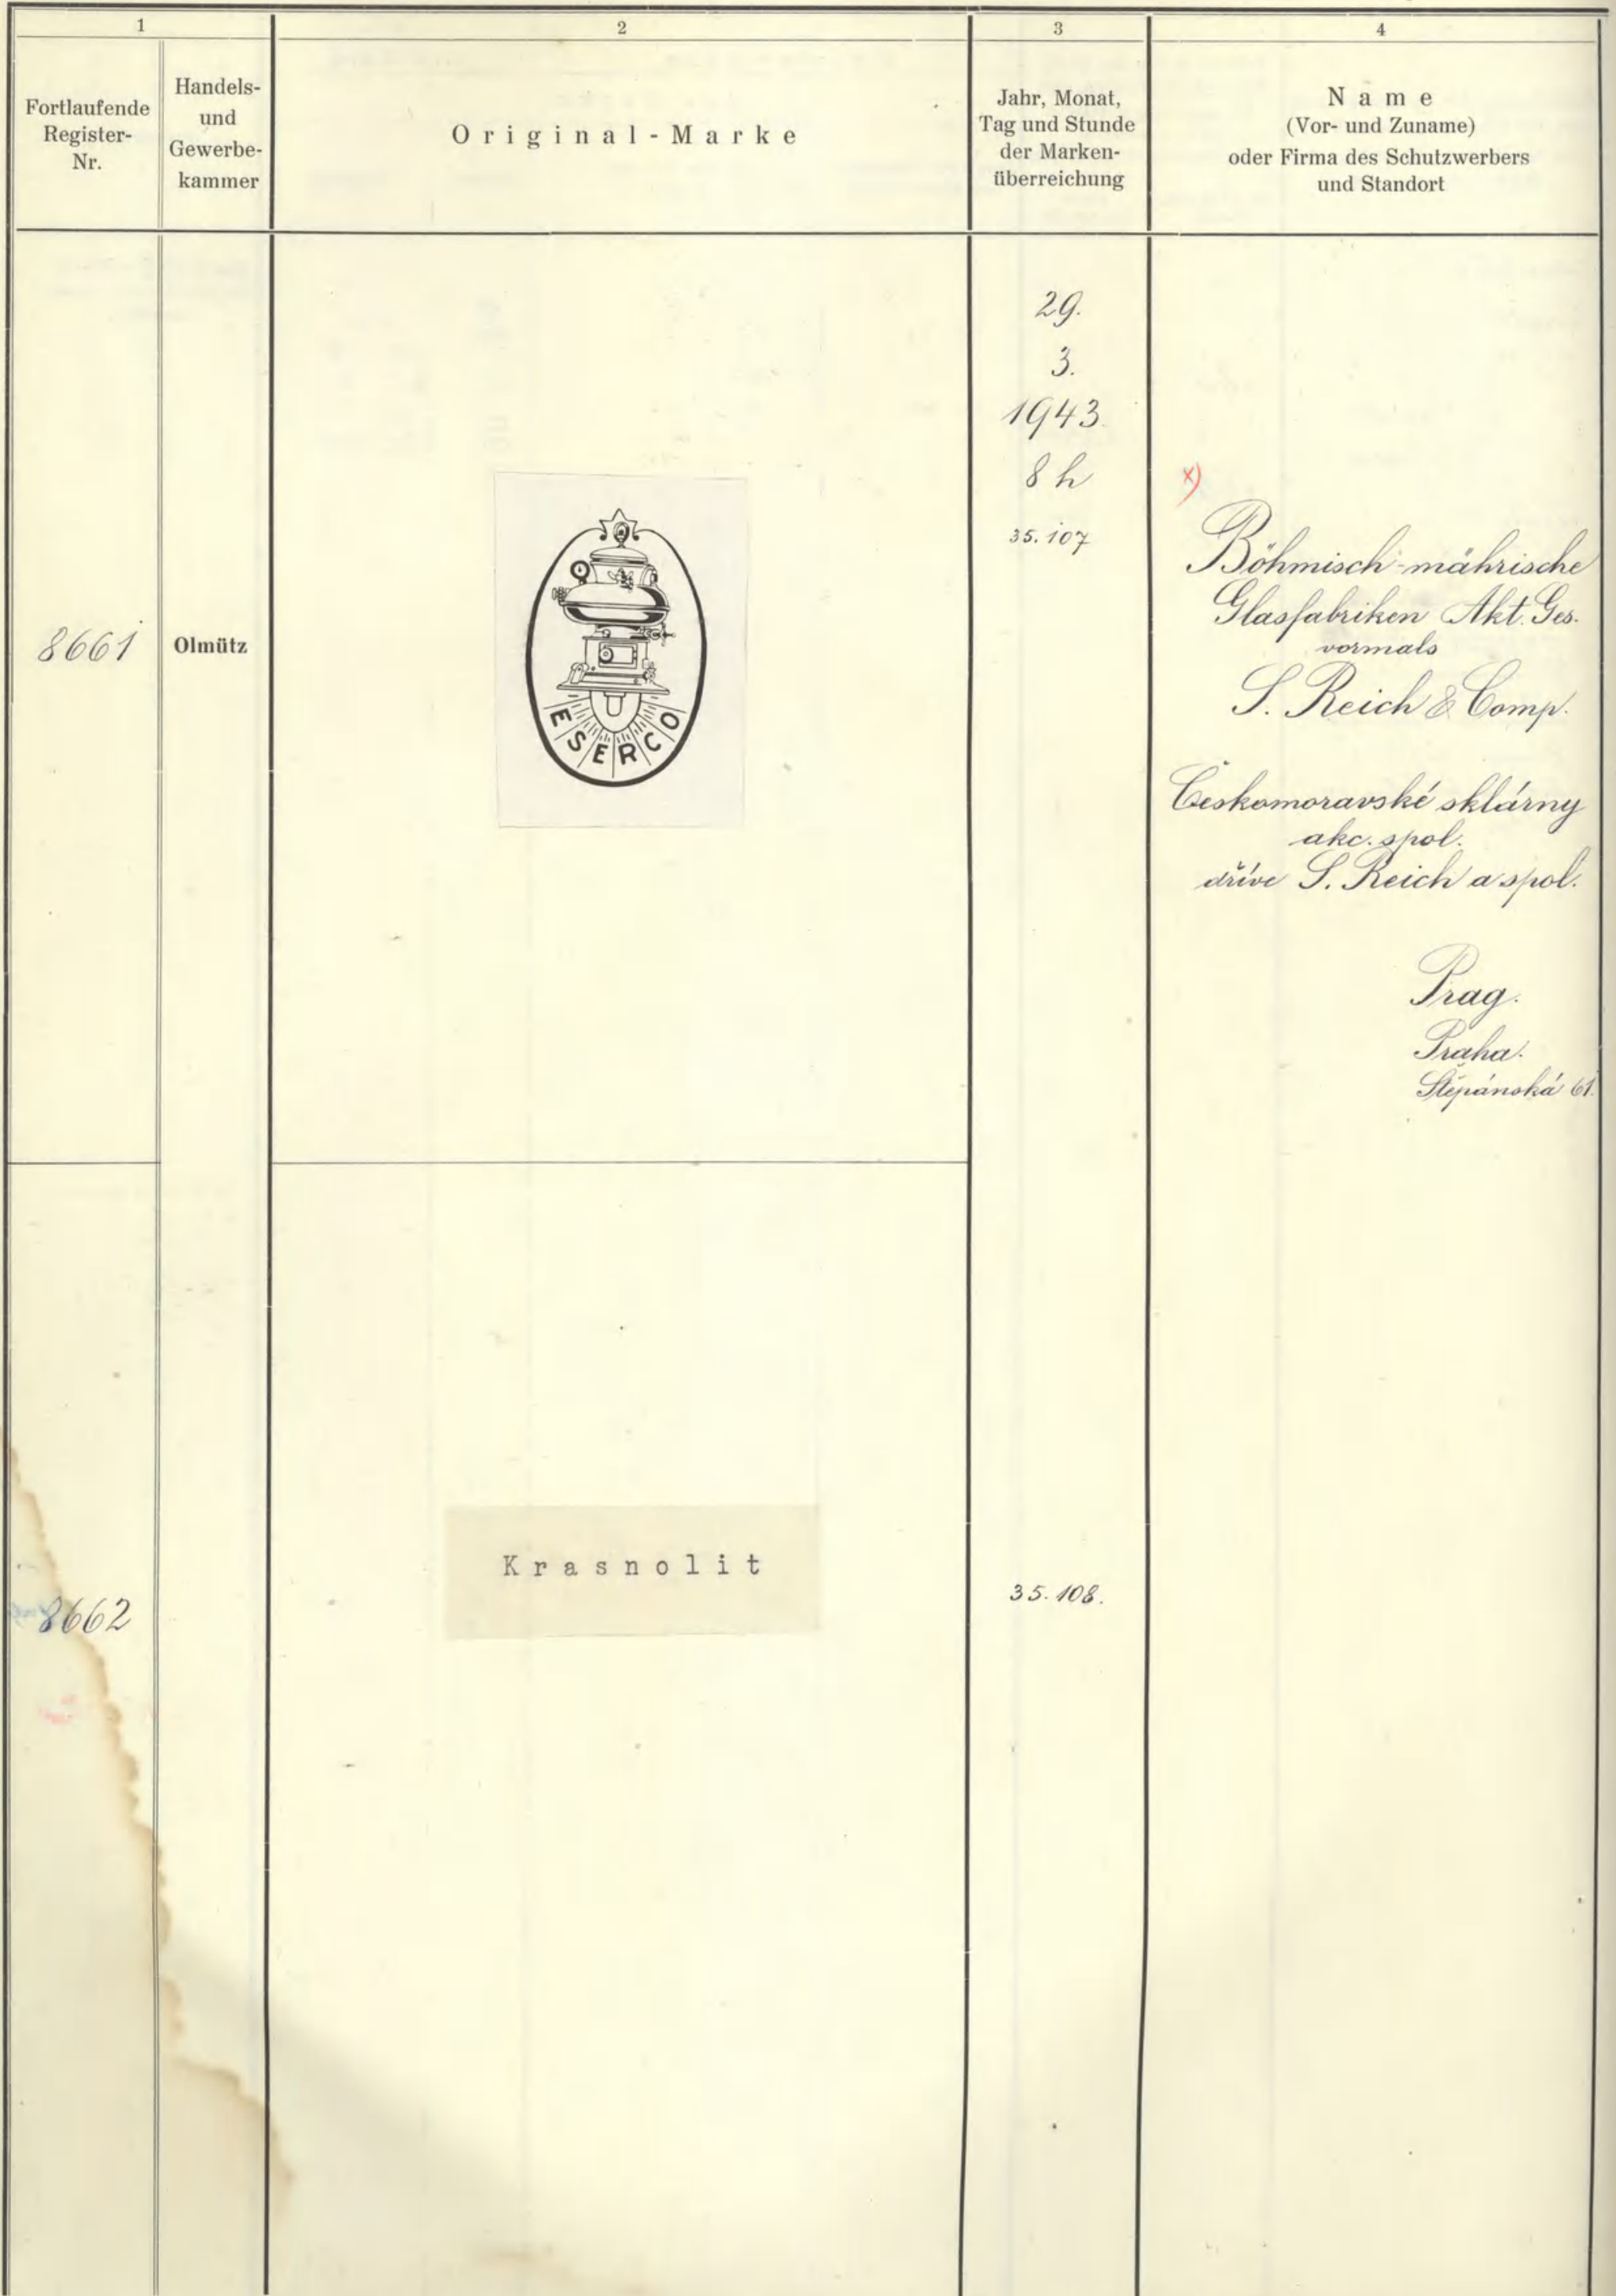 1
2
3
4
Fortlaufende
Register-
Nr.
Handels-
und
Gewerbe-
kammer
Original-Marke
Jahr, Monat,
Tag und Stunde
der Marken-
überreichung
Name
(Vor- und Zuname)
oder Firma des Schutzwerbers
und Standort
8661
Olmütz
ESERCO
29.
3.
1943.
8 h
35.107
x)
Böhmisch-mährische
Glasfabriken Akt. Ges.
vormals
S. Reich & Comp.
Českomoravské sklárny
akc. spol.
dříve S. Reich a spol.
Prag.
Praha.
Štěpánská 61.
8662
Krasnolit
35.108.